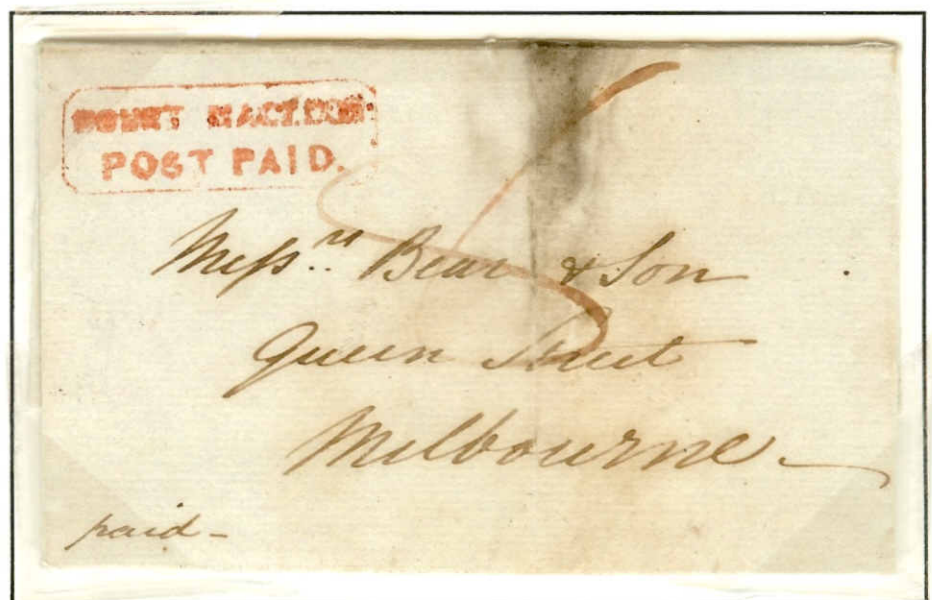 MOUNT MACEDON
POST PAID.
Messrs. Bear & Son
Queen Street
Melbourne
paid